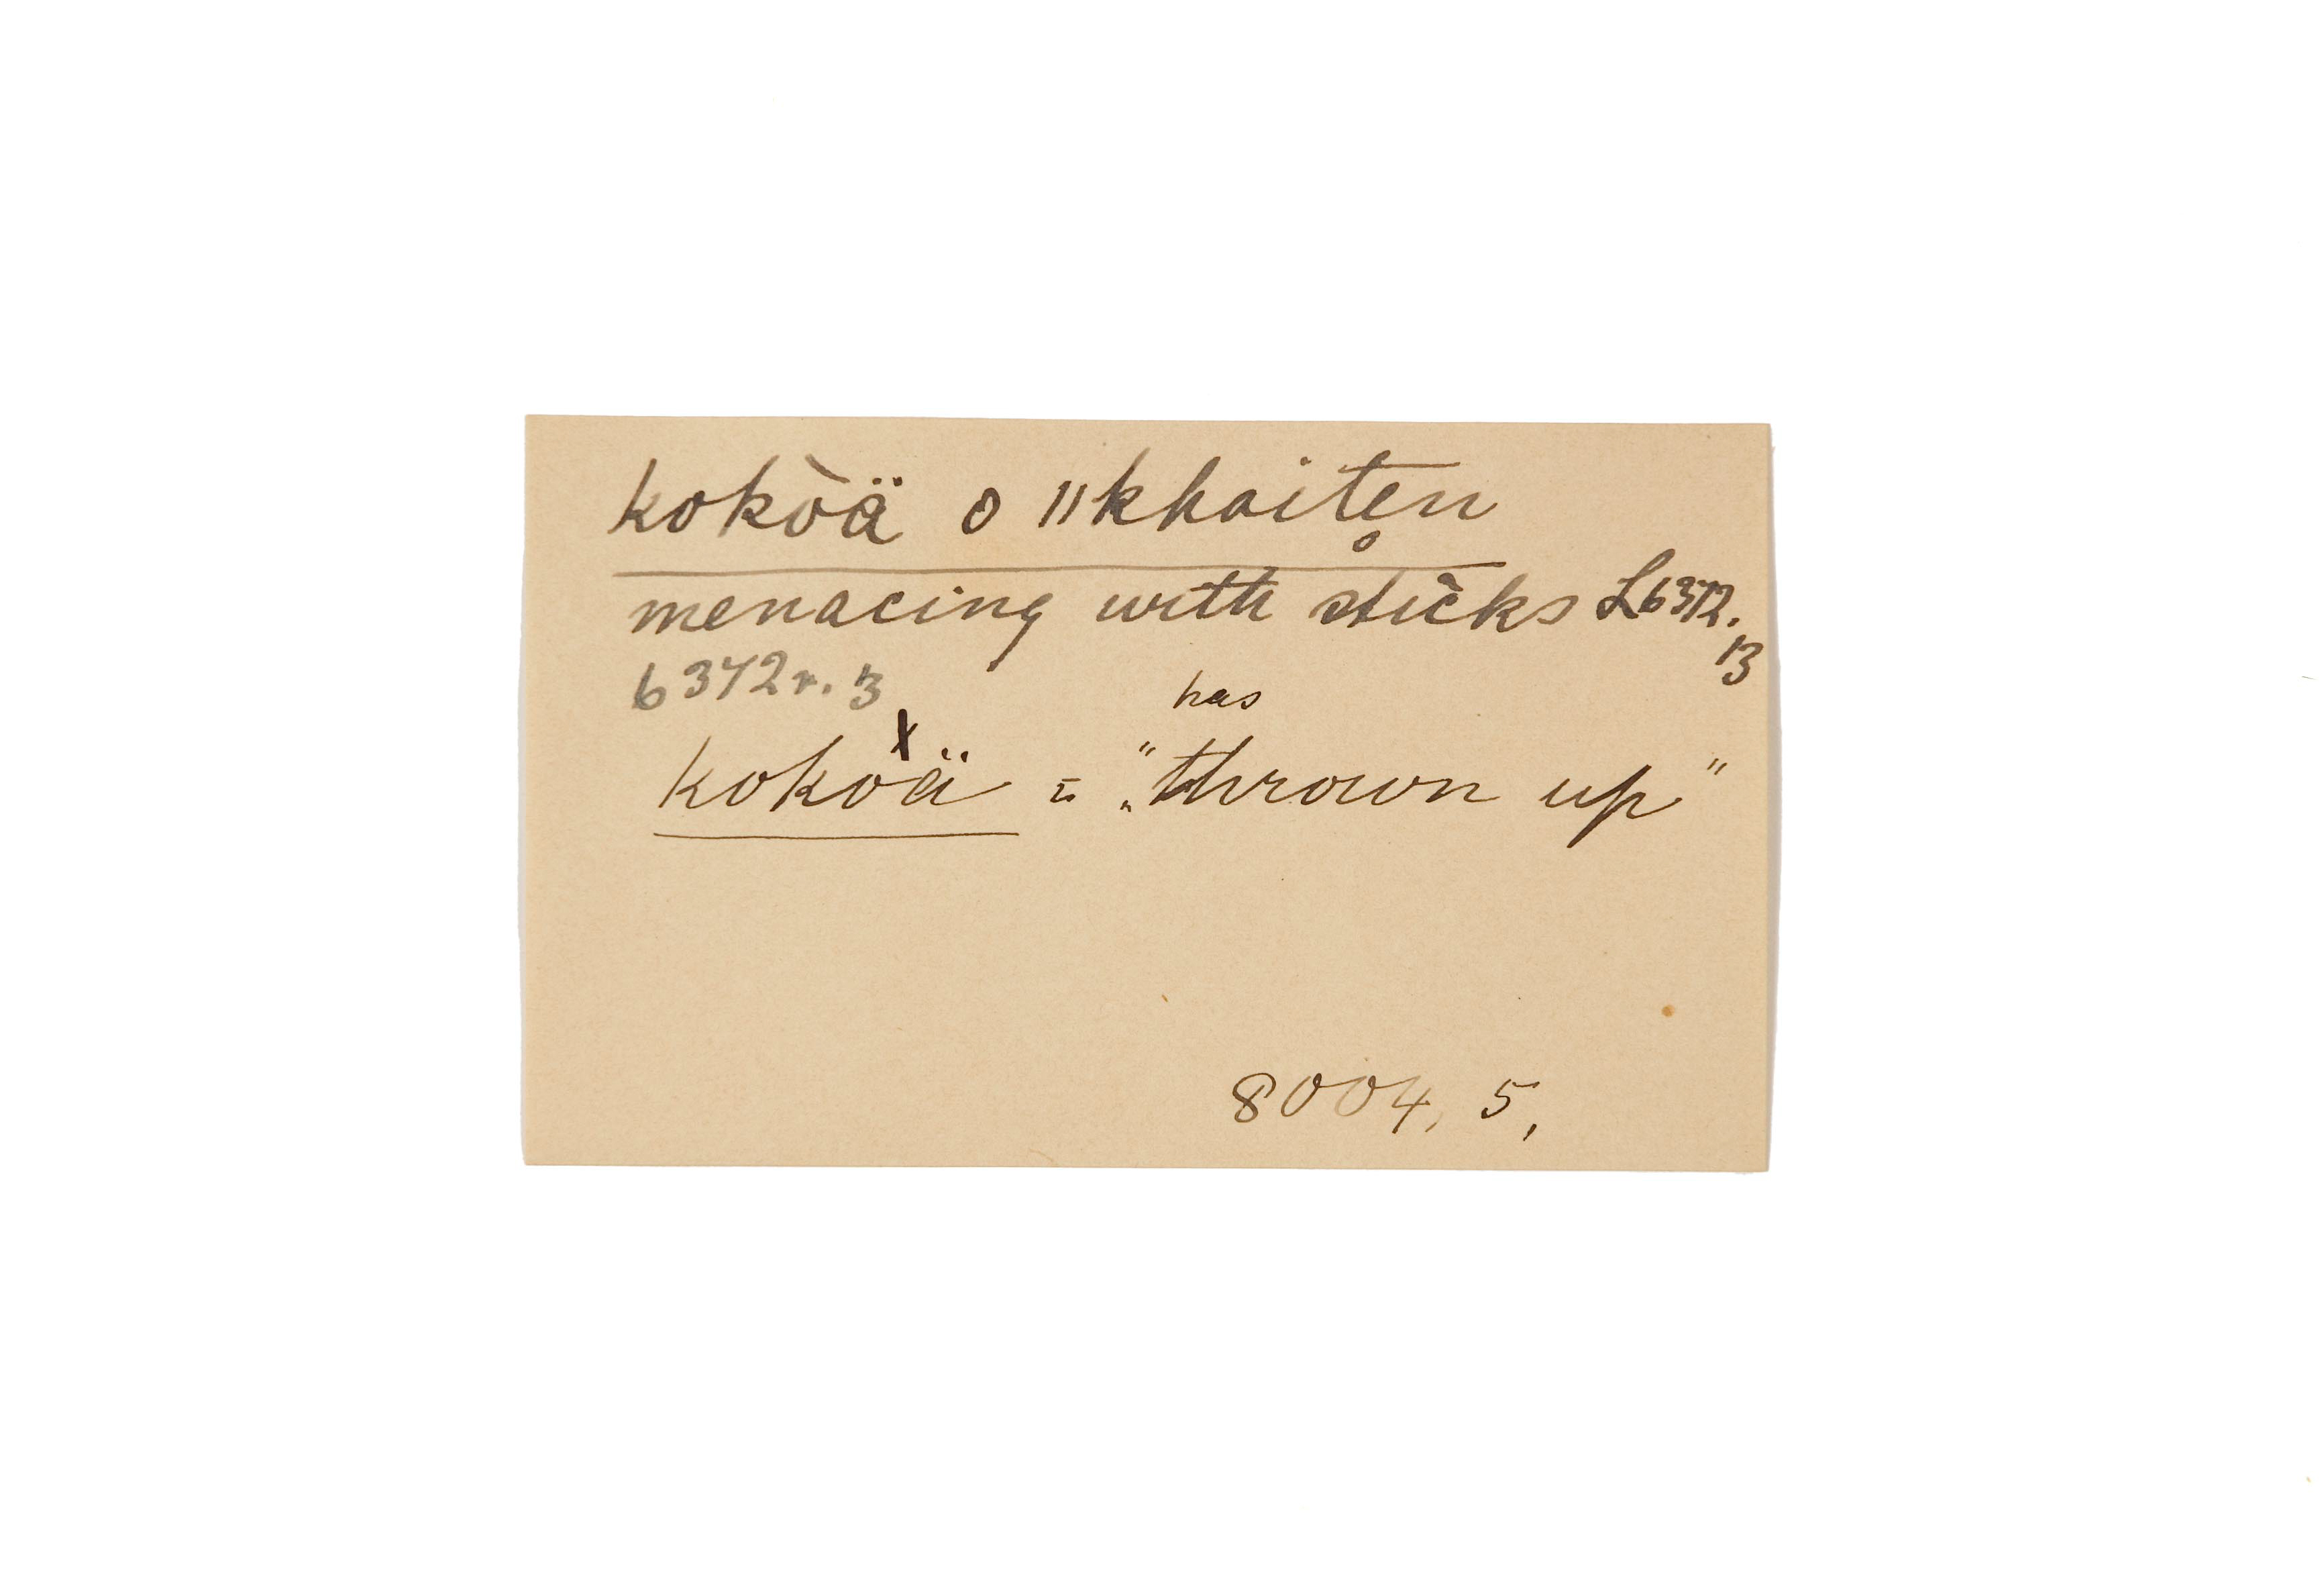 kokòä o ǁkhaiten̥
menacing with sticks L6372.
13
6372r. 3
has
kokoä = „"thrown up"
8004, 5,